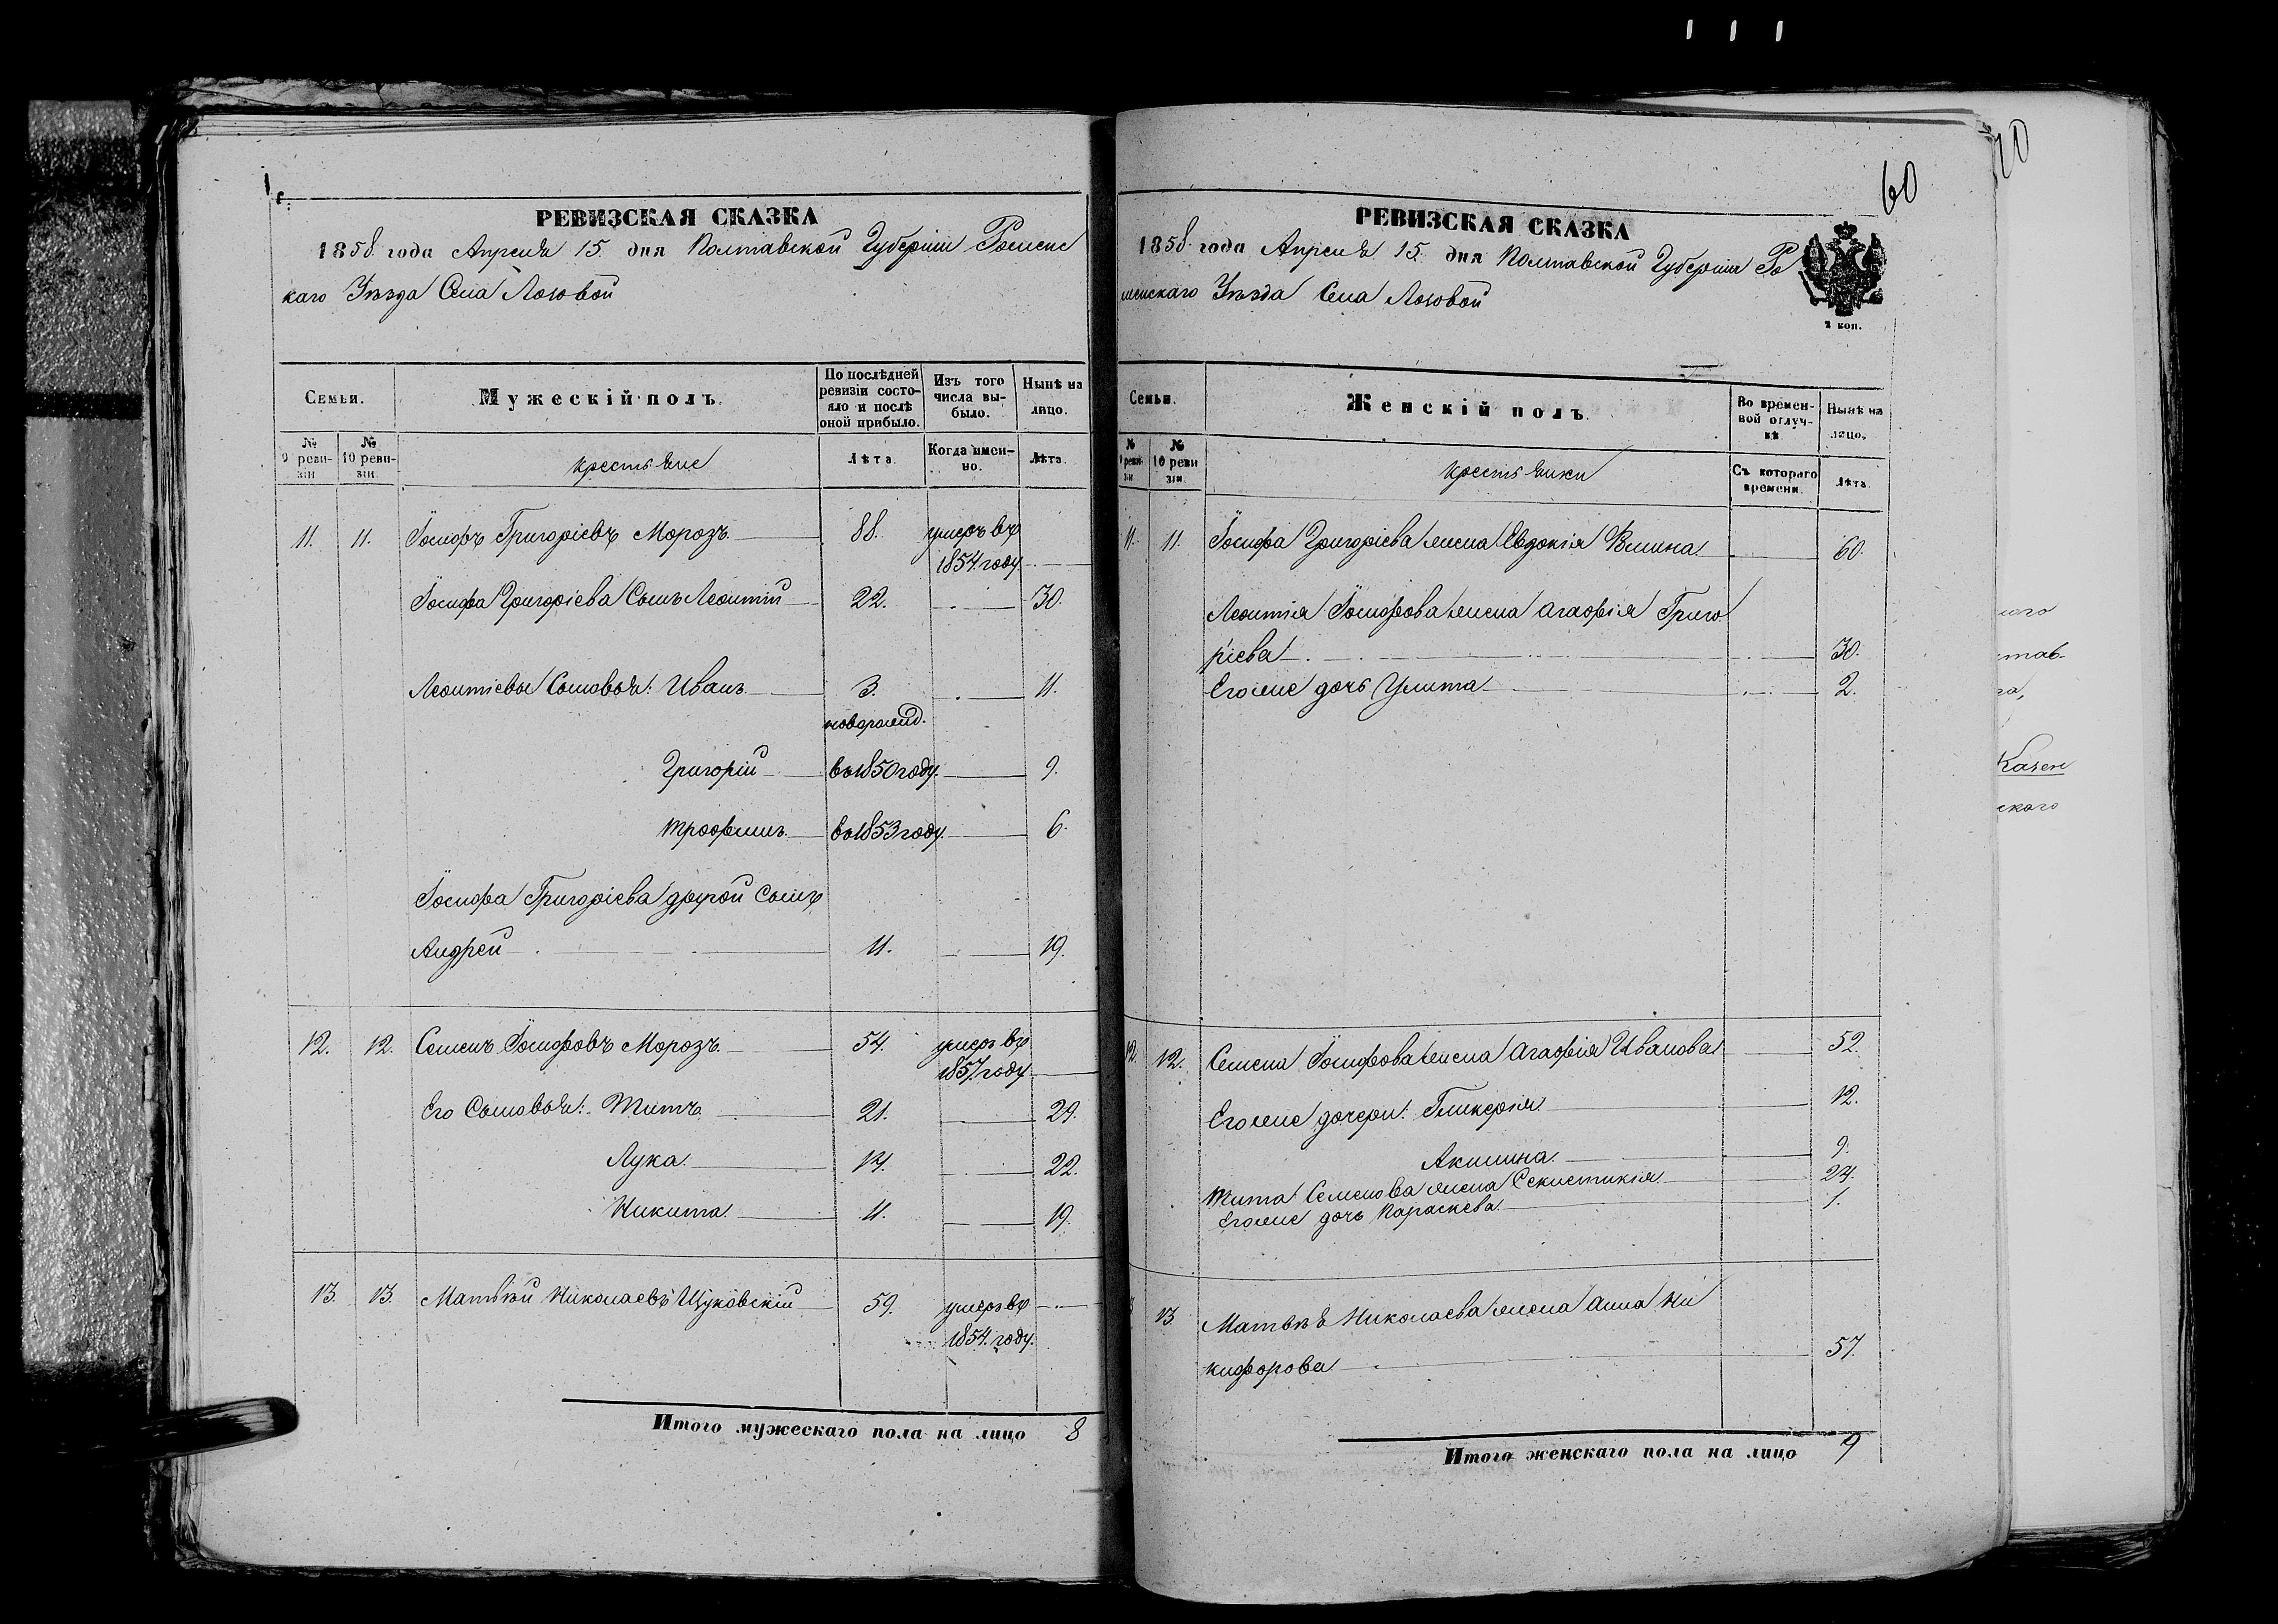 РЕВИЗСКАЯ СКАЗКА
1858 года Апреля 15. дня Полтавской Губерніи Роменс
каго Уѣзда Села Лозовой
Семьи.
Мужескій полъ.
По послѣдней ревизіи состо-
яло и послѣ оной прибыло.
Изъ того числа вы-
было.
Нынѣ на лицо.
№ 9 реви-
зіи
№ 10 реви-
зіи.
крестьяне
Лѣта.
Когда имен-
но.
Лѣта.
11. 11. Іосифъ Григоріевъ Морозъ 88. умеръ въ
1854. году.
Іосифа Григоріева Сынъ Леонтій 22. 30.
Леонтіевы Сыновья: Иванъ 3. 11.
новорожд.
Григорій въ 1850 году. 9.
Трофимъ въ 1853 году. 6.
Іосифа Григоріева другой Сынъ
Андрей 11. 19.
12. 12. Семенъ Іосифовъ Морозъ 54. умеръ въ
1857. году
Его Сыновья: Титъ 21. 29.
Лука 14. 22.
Никита 11. 19.
13. 13. Матвѣй Николаевъ Щуковскій 59. умеръ въ
1854. году.
Итого мужескаго пола на лицо 8
60
РЕВИЗСКАЯ СКАЗКА
1858 года Апреля 15. дня Полтавской Губерніи Ро
менскаго Уѣзда Села Лозовой
2 коп.
Семьи.
Женскій полъ.
Во времен-
ной отлуч-
кѣ
Нынѣ на лицо.
№ 9 реви
зіи
№ 10 реви
зіи.
крестьянки
Съ котораго времени.
Лѣта.
11. 11. Іосифа Григоріева жена Евдокія 60.
Леонтія Іосифова жена Агафія Григо
ріева 30.
Его же дочь Улита 2.
12. 12. Семена Іосифова жена Агафія Иванова 52.
Его же дочери: Гликерія 12.
Акилина 9.
Тита Семенова жена 24.
Его же дочь Параскева 1.
13 Матвѣя Николаева жена Анна Ни
кифорова 57.
Итого женскаго пола на лицо 9